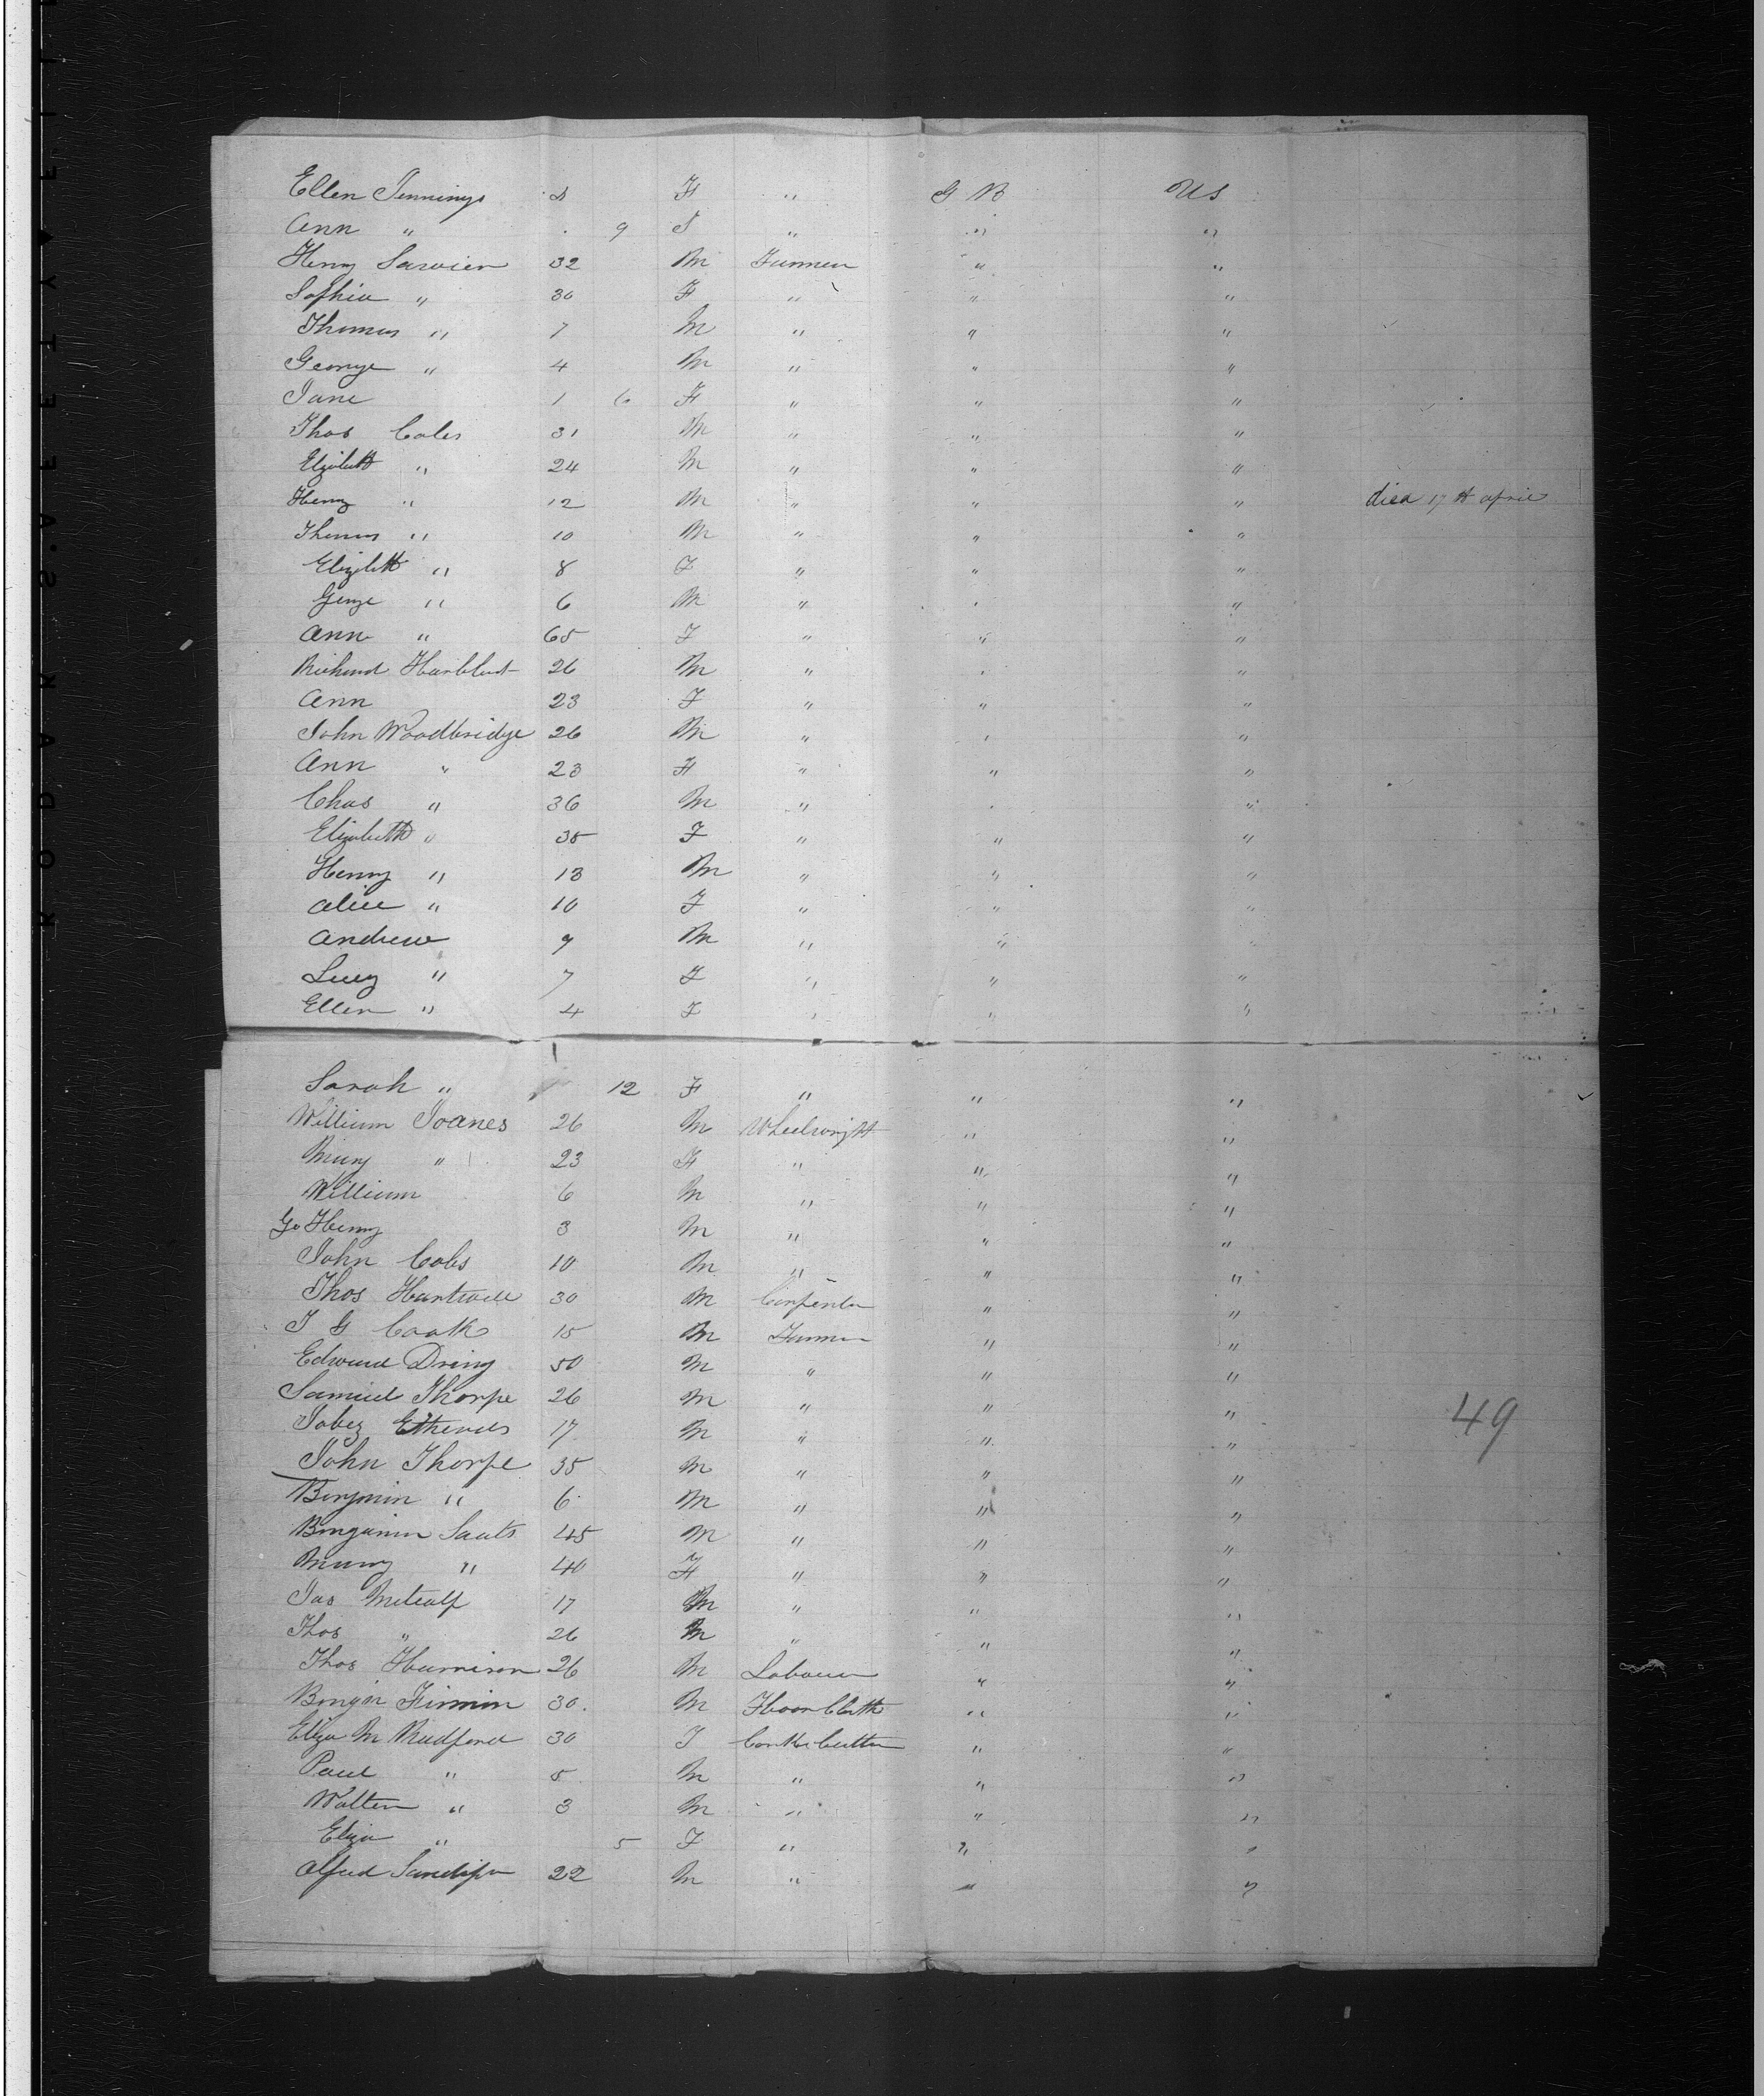 Ellen Jennings F " G B US
Ann " 9 " " "
Henry 32 M Farmer " "
Sophia " 30 F " " "
Thomas " 7 M " " "
George " 4 M " " "
Jane 1 6 F " " "
Thos Coles 31 M " " "
Elizabeth " 24 M " " "
Henry " 12 M " " " died 17th april
Thomas " 10 M " " "
Elizabeth " 8 F " " "
George " 6 M " " "
Ann " 65 F " " "
Richard 26 M " " "
Ann 23 F " " "
John Woodbridge 26 M " " "
Ann " 23 F " " "
Chas " 36 M " " "
Elizabeth " 35 F " " "
Henry " 13 M " " "
Alice " 10 F " " "
Andrew 9 M " " "
Lucy " 7 F " " "
Ellen " 4 F " " "
Sarah " 12 F " " "
William Joanes 26 M Wheelwright " "
Mary " 23 F " " "
William 6 M " " "
Go Henry 3 M " " "
John Cobs 10 M " " "
Thos 30 M Carpenter " "
J G Cook 15 M Farmer " "
Edward Dring 50 M " " "
Samuel Thorpe 26 M " " "
Jabez 17 M " " "
John Thorpe 35 M " " "
Benjmin " 6 M " " "
Benjamin 45 M " " "
Mary " 40 F " " "
Jas Metcalf 17 M " " "
Thos " 26 M " " "
Thos Harrison 26 M Labourer " "
Benj'n Firmin 30 M " "
Eliza M Mudford 30 F " "
Paul " 5 M " " "
Walter " 3 M " " "
Eliza " 5 F " " "
Alfred 22 M " " "
49